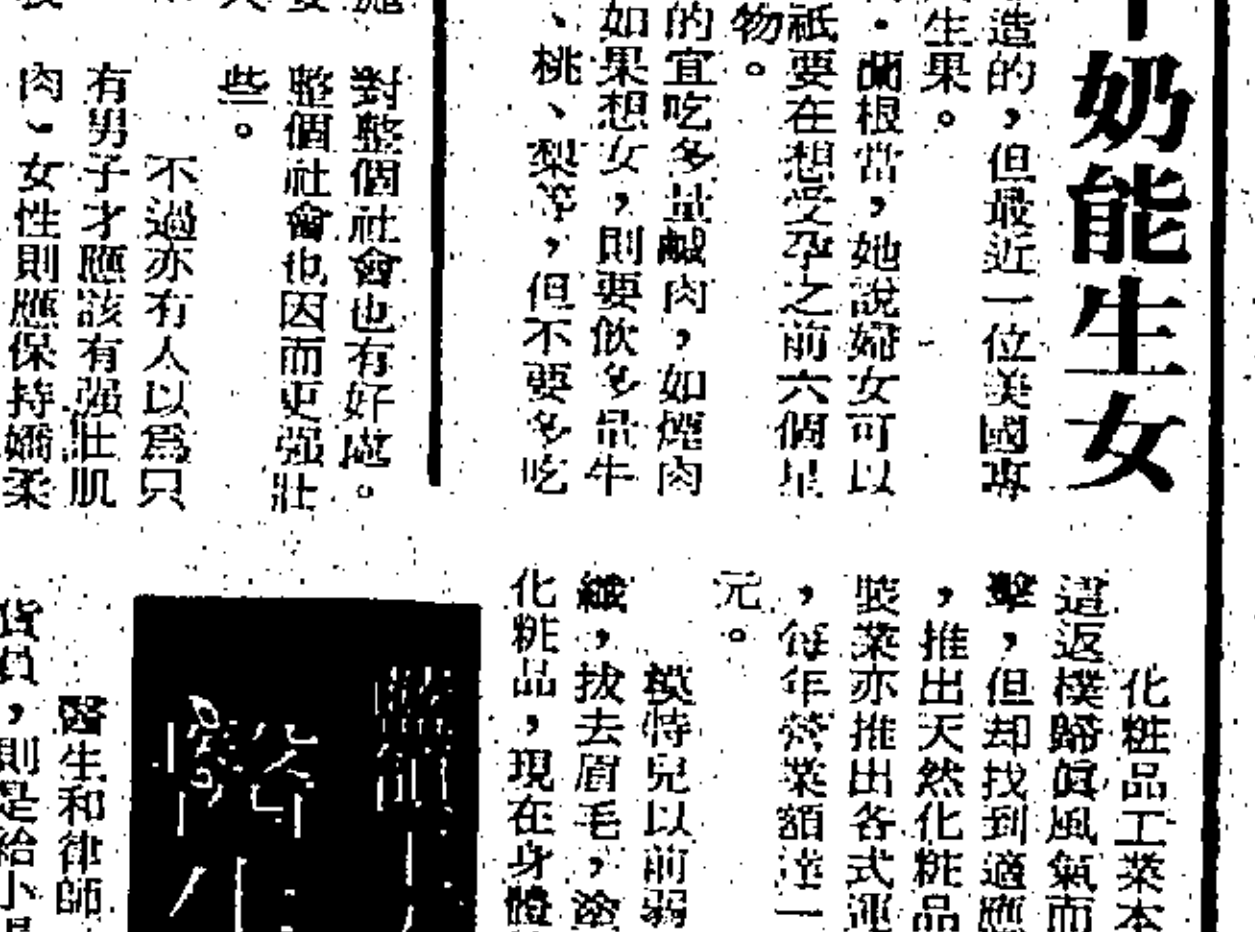 牛奶能生女
造的，但最近一位美國專
生果。
・蘭根當，她說婦女可以
祇要在想受孕之前六個星
物。
的宜吃多量鹹肉，如煙肉
如果想女，則要飲多量牛
、桃、梨等，但不要多吃
對整個社會也有好處。
整個社會也因而更强壯
些。
不過亦有人以爲只
有男子才應該有强壯肌
肉）女性則應保持嬌柔
化粧品工業本
這返樸歸眞風氣而
擊，但却找到適應
，推出天然化粧品
裝業亦推出各式運
，每年營業額達一
元。
模特兒以前弱
纖，拔去眉毛，塗
化粧品，現在身體
醫生和律師
貨員，則是給小